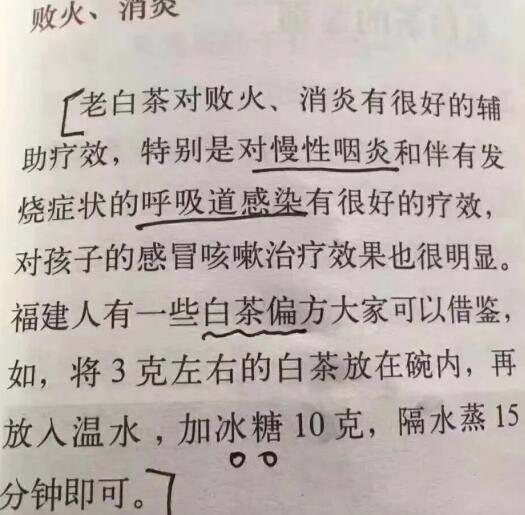 败火、消炎
老白茶对败火、消炎有很好的辅
助疗效，特别是对慢性咽炎和伴有发
烧症状的呼吸道感染有很好的疗效，
对孩子的感冒咳嗽治疗效果也很明显。
福建人有一些白茶偏方大家可以借鉴，
如，将3克左右的白茶放在碗内，再
放入温水，加冰糖10克，隔水蒸15
分钟即可。